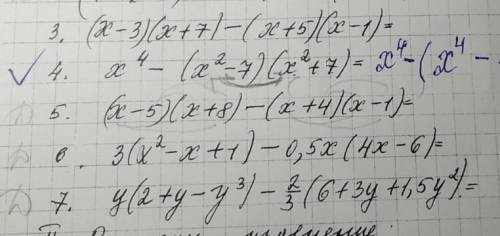 3. (x-3)(x+7)-(x+5)(x-1)=
4. x⁴-(x²-7)(x²+7)= x⁴-(x⁴-
5. (x-5)(x+8)-(x+4)(x-1)=
6. 3(x²-x+1)-0,5x(4x-6)=
7. y(2+y-y³)-2/3(6+3y+1,5y²)=